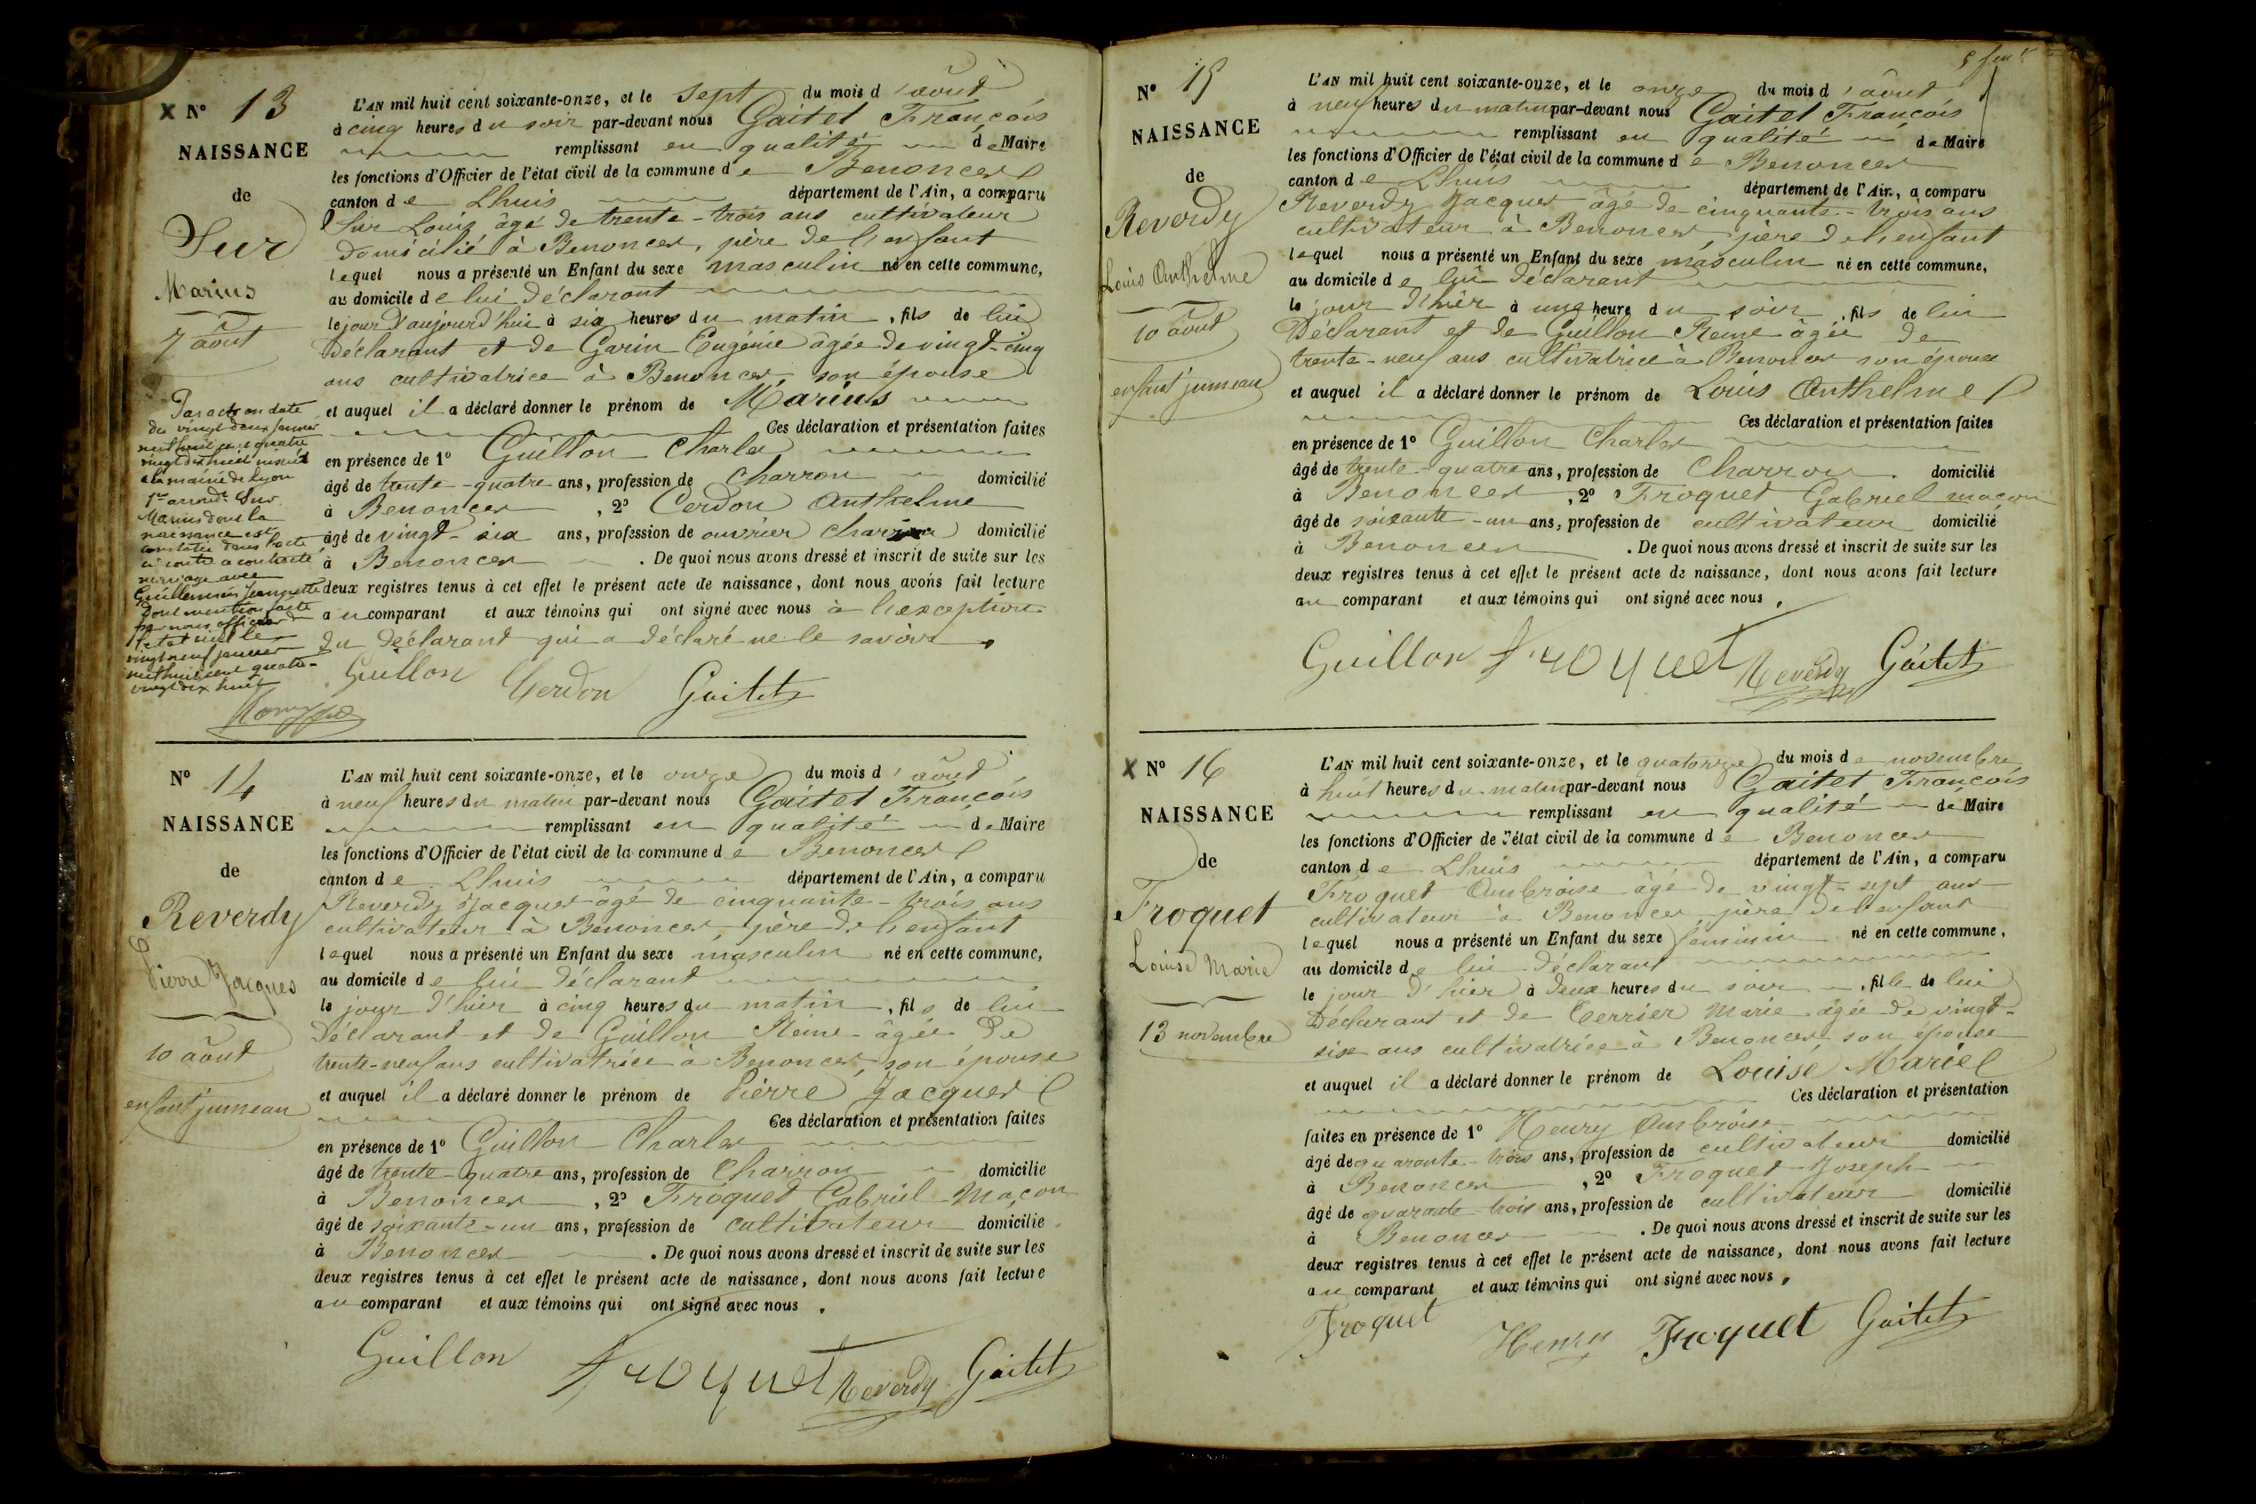 N° 13
NAISSANCE
de
Sur
Marius
7 août
Par acte en date
du vingt deux janvier
mil huit cent quatre
vingt dix huit inscrit
à la mairie de Lyon
1er arrondt Sur
Marius dont la
naissance est
constatée dans l'acte
ci contre a contracté
mariage avec
Guillermin Jeannette
Dont mention faite
par nous officier de
l'état civil le
vingt neuf janvier
mil huit cent quatre-
vingt dix huit
L'AN mil huit cent soixante-onze, et le sept du mois d'août
à cinq heures du soir par-devant nous Gaitet François
remplissant en qualité de Maire
les fonctions d'Officier de l'état civil de la commune de Benonces
canton de Lhuis département de l'Ain, a comparu
Sur Louis âgé de trente-trois ans cultivateur
domicilié à Benonces, père de l'enfant
lequel nous a présenté un Enfant du sexe masculin né en cette commune,
au domicile de lui déclarant
le jour d'aujourd'hui à six heures du matin, fils de lui
Déclarant et de Garin Eugénie âgée de vingt-cinq
ans cultivatrice à Benonces, son épouse
et auquel il a déclaré donner le prénom de Marius
Ces déclaration et présentation faites
en présence de 1° Guillon Charles
âgé de trente-quatre ans, profession de charron domicilié
à Benonces, 2° Cerdon Anthelme
âgé de vingt-six ans, profession de ouvrier charron domicilié
à Benonces. De quoi nous avons dressé et inscrit de suite sur les
deux registres tenus à cet effet le présent acte de naissance, dont nous avons fait lecture
au comparant et aux témoins qui ont signé avec nous à l'exception
du déclarant qui a déclaré ne le savoir.
Guillon Cerdon Gaitet
N° 14
NAISSANCE
de
Reverdy
Pierre Jacques
10 août
enfant jumeau
L'AN mil huit cent soixante-onze, et le onze du mois d'août
à neuf heures du matin par-devant nous Gaitet François
remplissant en qualité de Maire
les fonctions d'Officier de l'état civil de la commune de Benonces
canton de Lhuis département de l'Ain, a comparu
Reverdy Jacques âgé de cinquante-trois ans
cultivateur à Benonces, père de l'enfant
lequel nous a présenté un Enfant du sexe masculin né en cette commune,
au domicile de lui déclarant
le jour d'hier à cinq heures du matin, fils de lui
déclarant et de Guillon Reine âgée de
trente-neuf ans cultivatrice à Benonces, son épouse
et auquel il a déclaré donner le prénom de Pierre Jacques
Ces déclaration et présentation faites
en présence de 1° Guillon Charles
âgé de trente-quatre ans, profession de charron domicilié
à Benonces, 2° Froquet Gabriel maçon
âgé de soixante-un ans, profession de cultivateur domicilié
à Benonces. De quoi nous avons dressé et inscrit de suite sur les
deux registres tenus à cet effet le présent acte de naissance, dont nous avons fait lecture
au comparant et aux témoins qui ont signé avec nous.
Guillon Froquet Reverdy Gaitet
N° 15
NAISSANCE
de
Reverdy
Louis Anthelme
10 août
enfant jumeau
L'AN mil huit cent soixante-onze, et le onze du mois d'août
à neuf heures du matin par-devant nous Gaitet François
remplissant en qualité de Maire
les fonctions d'Officier de l'état civil de la commune de Benonces
canton de Lhuis département de l'Ain, a comparu
Reverdy Jacques âgé de cinquante-trois ans
cultivateur à Benonces, père de l'enfant
lequel nous a présenté un Enfant du sexe masculin né en cette commune,
au domicile de lui déclarant
le jour d'hier à une heure du soir, fils de lui
Déclarant et de Guillon Reine âgée de
trente-neuf ans cultivatrice à Benonces son épouse
et auquel il a déclaré donner le prénom de Louis Anthelme
Ces déclaration et présentation faites
en présence de 1° Guillon Charles
âgé de trente-quatre ans, profession de Charron domicilié
à Benonces, 2° Froquet Gabriel maçon
âgé de soixante-un ans, profession de cultivateur domicilié
à Benonces. De quoi nous avons dressé et inscrit de suite sur les
deux registres tenus à cet effet le présent acte de naissance, dont nous avons fait lecture
au comparant et aux témoins qui ont signé avec nous.
Guillon Froquet Reverdy Gaitet
N° 16
NAISSANCE
de
Froquet
Louise Marie
13 novembre
L'AN mil huit cent soixante-onze, et le quatorze du mois de novembre
à huit heures du matin par-devant nous Gaitet François
remplissant en qualité de Maire
les fonctions d'Officier de l'état civil de la commune de Benonces
canton de Lhuis département de l'Ain, a comparu
Froquet Ambroise âgé de vingt-sept ans
cultivateur à Benonces, père de l'enfant
lequel nous a présenté un Enfant du sexe féminin né en cette commune,
au domicile de lui déclarant
le jour d'hier à deux heures du soir, fille de lui
Déclarant et de Terrier Marie âgée de vingt-
six ans cultivatrice à Benonces son épouse
et auquel il a déclaré donner le prénom de Louise Marie
Ces déclaration et présentation
faites en présence de 1° Henry Ambroise
âgé de quarante-trois ans, profession de cultivateur domicilié
à Benonces, 2° Froquet Joseph
âgé de quarante-trois ans, profession de cultivateur domicilié
à Benonces. De quoi nous avons dressé et inscrit de suite sur les
deux registres tenus à cet effet le présent acte de naissance, dont nous avons fait lecture
au comparant et aux témoins qui ont signé avec nous.
Froquet Henry Froquet Gaitet